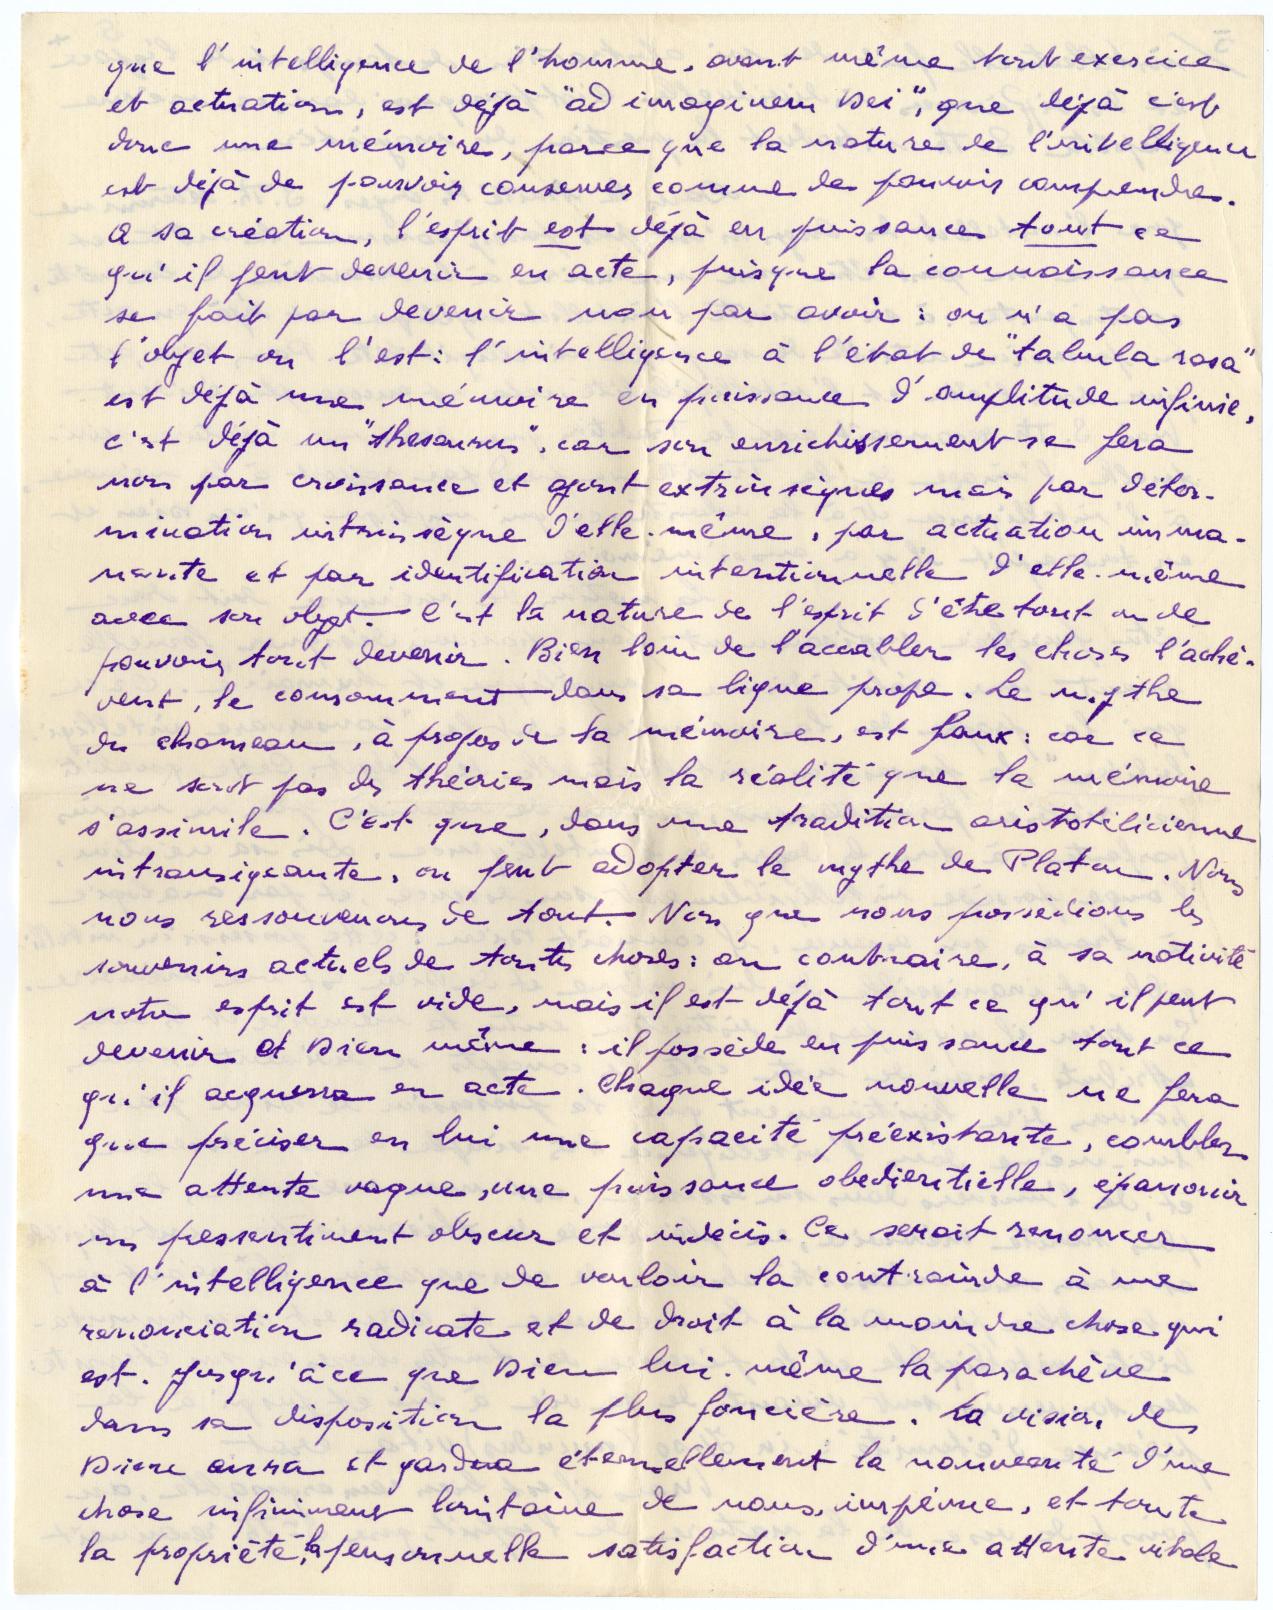 que l'intelligence de l'homme, avant même tout exercice
et actuation, est déjà "ad imaginem Dei", que déjà c'est
donc une mémoire, parce que la nature de l'intelligence
est déjà de pouvoir conserver comme de pouvoir comprendre.
A sa création, l'esprit est déjà en puissance tout ce
qu'il peut devenir en acte, puisque la connaissance
se fait par devenir non par avoir : on n'a pas
l'objet on l'est : l'intelligence à l'état de "tabula rasa"
est déjà une mémoire en puissance d'amplitude infinie,
c'est déjà un "thesaurus", car son enrichissement se fera
non par croissance et ajout extrinsèques mais par déter-
mination intrinsèque d'elle-même, par actuation imma-
nente et par identification intentionnelle d'elle-même
avec son objet. C'est la nature de l'esprit d'être tout ou de
pouvoir tout devenir. Bien loin de l'accabler les choses l'achè-
vent, le consomment dans sa ligne propre. Le mythe
du chameau, à propos de la mémoire, est faux : car ce
ne sont pas des théories mais la réalité que la mémoire
s'assimile. C'est que, dans une tradition aristotélicienne
intransigeante, on peut adopter le mythe de Platon. Nous
nous ressouvenons de tout. Non que nous possédions les
souvenirs actuels de toutes choses : au contraire, à sa nativité
notre esprit est vide, mais il est déjà tout ce qu'il peut
devenir et Dieu même : il possède en puissance tout ce
qu'il acquerra en acte. Chaque idée nouvelle ne fera
que préciser en lui une capacité préexistante, combler
une attente vague, une puissance obédientielle, épanouir
un pressentiment obscur et indécis. Ce serait renoncer
à l'intelligence que de vouloir la contraindre à une
renonciation radicale et de droit à la moindre chose qui
est. Jusqu'à ce que Dieu lui-même la parachève
dans sa disposition la plus foncière. La vision de
Dieu aura et gardera éternellement la nouveauté d'une
chose infiniment lointaine de nous, imprévue, et toute
la propriété, la personnelle satisfaction d'une attente vitale